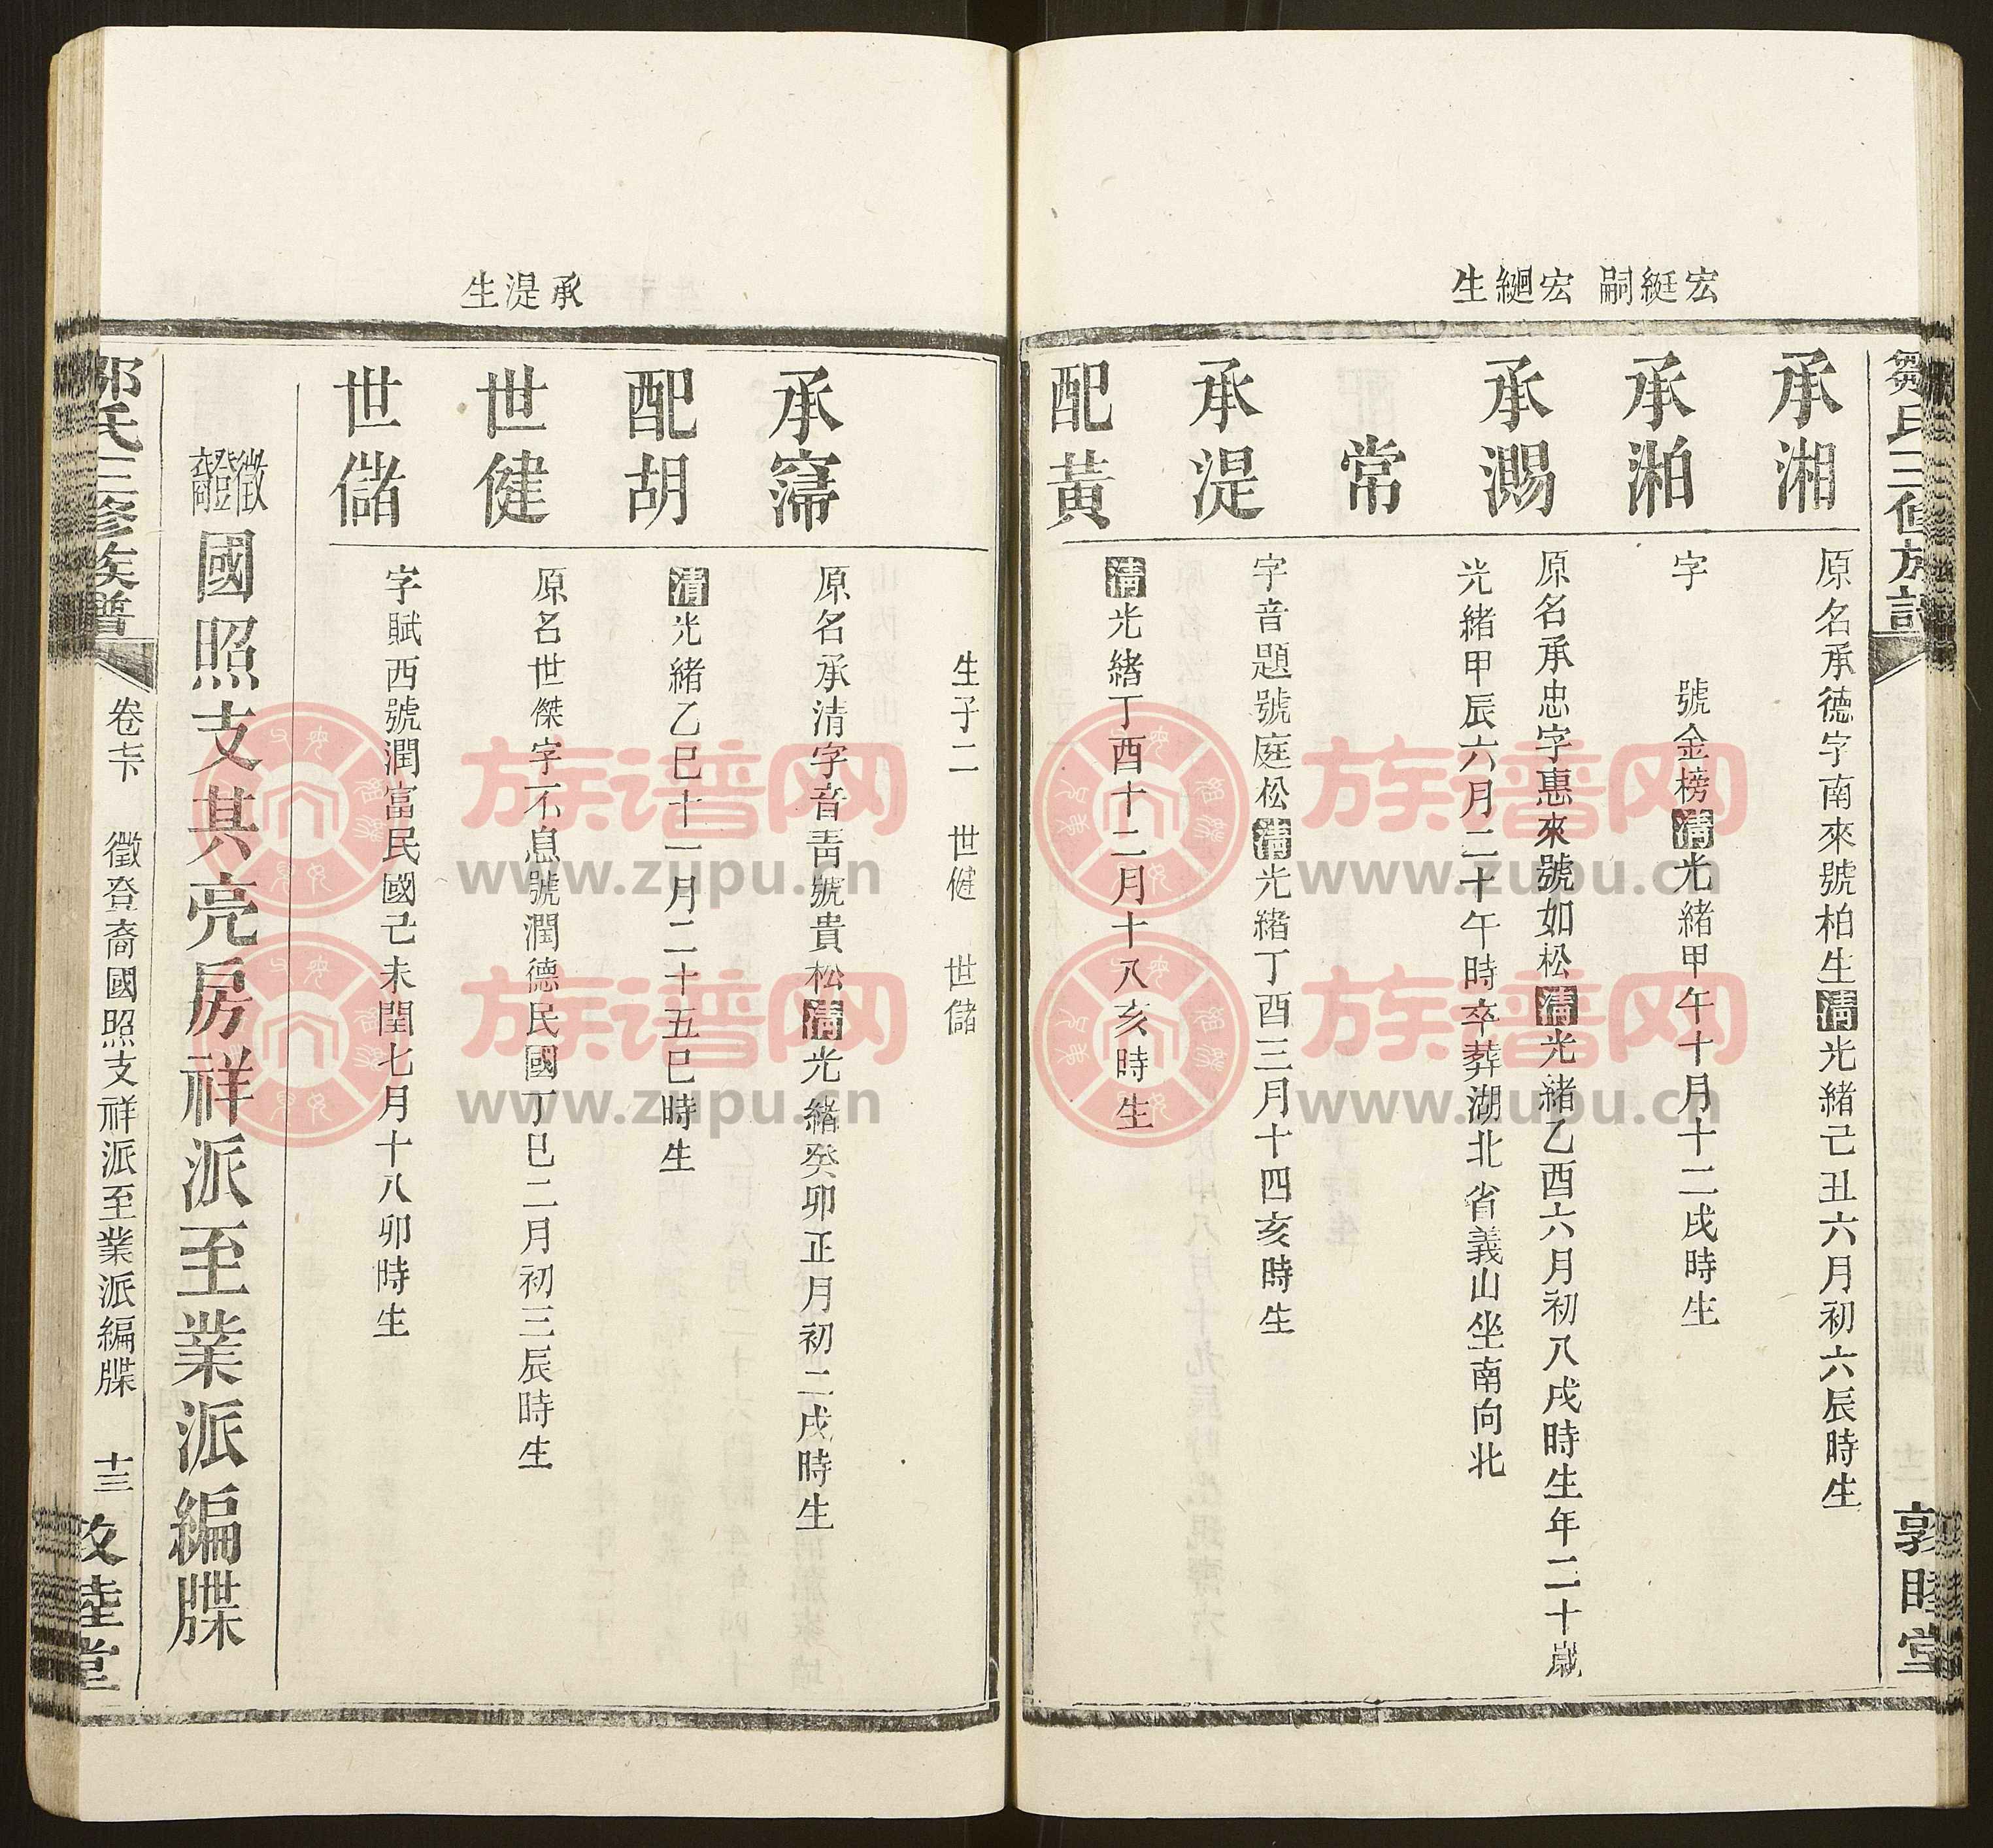 鄒氏三修族譜
敦睦堂
宏綎嗣
宏綖生
承湘
原名承德字南來號柏生清光緒己丑六月初六辰時生
承湐
字 號金榜清光緒甲午十月十二戌時生
承湯
原名承忠字惠來號如松清光緒乙酉六月初八戌時生年二十歲
常
光緒甲辰六月二十午時卒葬湖北省義山坐南向北
承湜
字音題號庭松清光緒丁酉三月十四亥時生
配黃
清光緒丁酉十二月十八亥時生
承湜生
生子二 世健 世儲
承
原名承清字音青號貴松清光緒癸卯正月初二戌時生
配胡
清光緒乙巳十一月二十五巳時生
世健
原名世傑字不息號潤德民國丁巳二月初三辰時生
世儲
字賦西號潤富民國己未閏七月十八卯時生
徵證裔國照支其亮房祥派至業派編牒
鄒氏三修族譜
卷 徵登裔國照支祥派至業派編牒
十三
敦睦堂
族谱网
www.zupu.cn
族谱网
www.zupu.cn
族谱网
www.zupu.cn
族谱网
www.zupu.cn